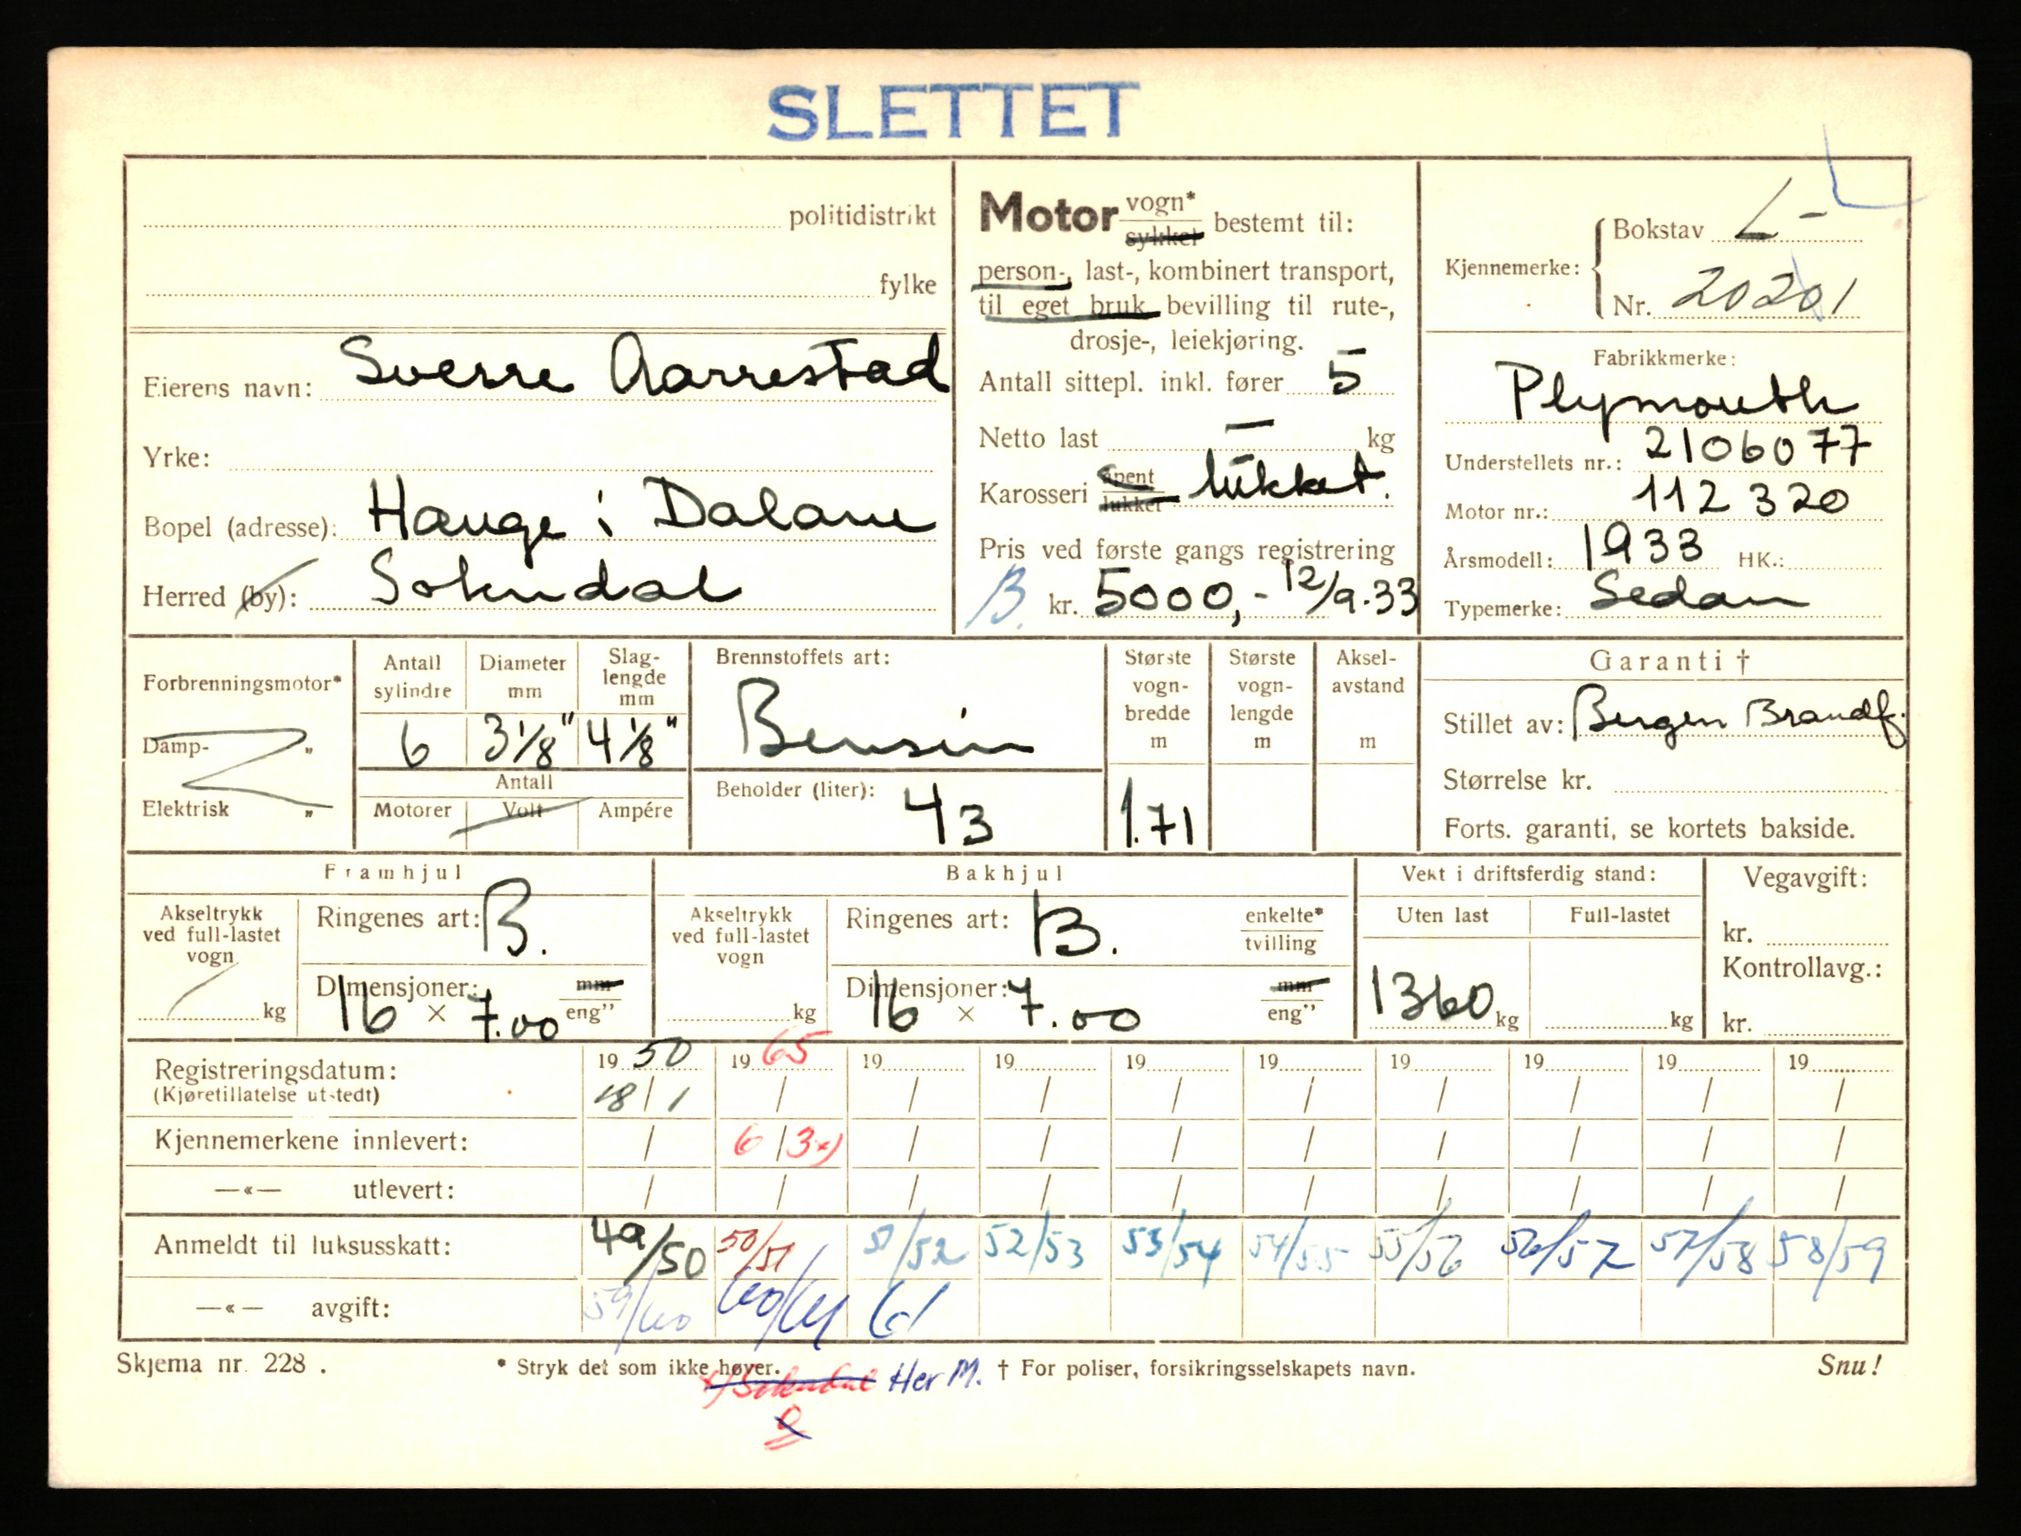 SLETTET
politidistrikt
fylke
Eierens navn: Sverre Aarrestad
Yrke:
Bopel (adresse): Hauge i Dalane
Herred (by): Sokndal
Motor vogn* sykkel bestemt til:
person-, last-, kombinert transport,
til eget bruk, bevilling til rute-,
drosje-, leiekjøring.
Antall sittepl. inkl. fører 5
Netto last — kg
Karosseri åpent lukket lukket.
Pris ved første gangs registrering
B. kr. 5000,- 12/9.33
Kjennemerke: Bokstav L-
Nr. 20201
Fabrikkmerke:
Plymouth
Understellets nr.: 2106077
Motor nr.: 112320
Årsmodell: 1933 HK.:
Typemerke: Sedan
Forbrenningsmotor*
Damp- "
Elektrisk "
Antall sylindre Diameter mm Slag-lengde mm
6 3 1/8" 4 1/8"
Antall
Motorer Volt Ampére
Brennstoffets art:
Bensin
Beholder (liter): 43
Største vogn-bredde m
1.71
Største vogn-lengde m
Aksel-avstand m
Garanti †
Stillet av: Bergen Brandf.
Størrelse kr.
Forts. garanti, se kortets bakside.
Framhjul
Akseltrykk ved full-lastet vogn
kg
Ringenes art: B.
Dimensjoner: 16 × 7.00 mm eng"
Bakhjul
Akseltrykk ved full-lastet vogn
kg
Ringenes art: B. enkelte* tvilling
Dimensjoner: 16 × 7.00 mm eng"
Vekt i driftsferdig stand:
Uten last Full-lastet
1360 kg kg
Vegavgift:
kr.
Kontrollavg.:
kr.
Registreringsdatum: 19 50 19 65 19 19 19 19 19 19 19 19
(Kjøretillatelse utstedt) 18/1 / / / / / / / / /
Kjennemerkene innlevert: / 6/3 x) / / / / / / / /
—«— utlevert: / / / / / / / / / /
Anmeldt til luksusskatt: 49/50 50/51 51/52 52/53 53/54 54/55 55/56 56/57 57/58 58/59
—«— avgift: 59/60 60/61 61
Skjema nr. 228.
* Stryk det som ikke høver.
† For poliser, forsikringsselskapets navn.
Snu!
x) Sokndal Her M.